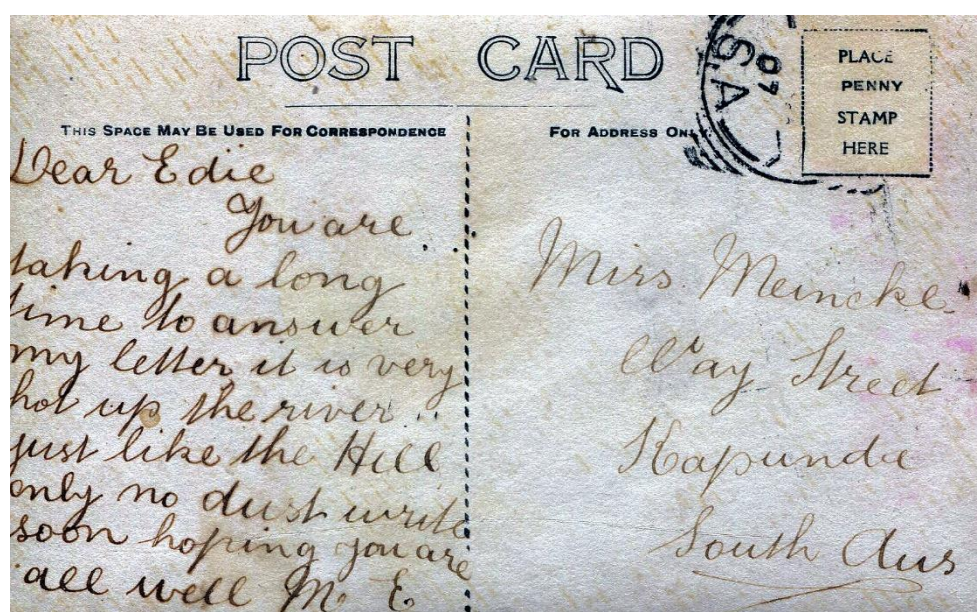 POST CARD
S.A
07
PLACE
PENNY
STAMP
HERE
THIS SPACE MAY BE USED FOR CORRESPONDENCE
FOR ADDRESS ONLY.
Dear Edie
You are
taking a long
time to answer
my letter it is very
hot up the river
just like the Hill
only no dust write
soon hoping you are
all well M. E.
Miss Meincke
Way Street
Kapunda
South Aus